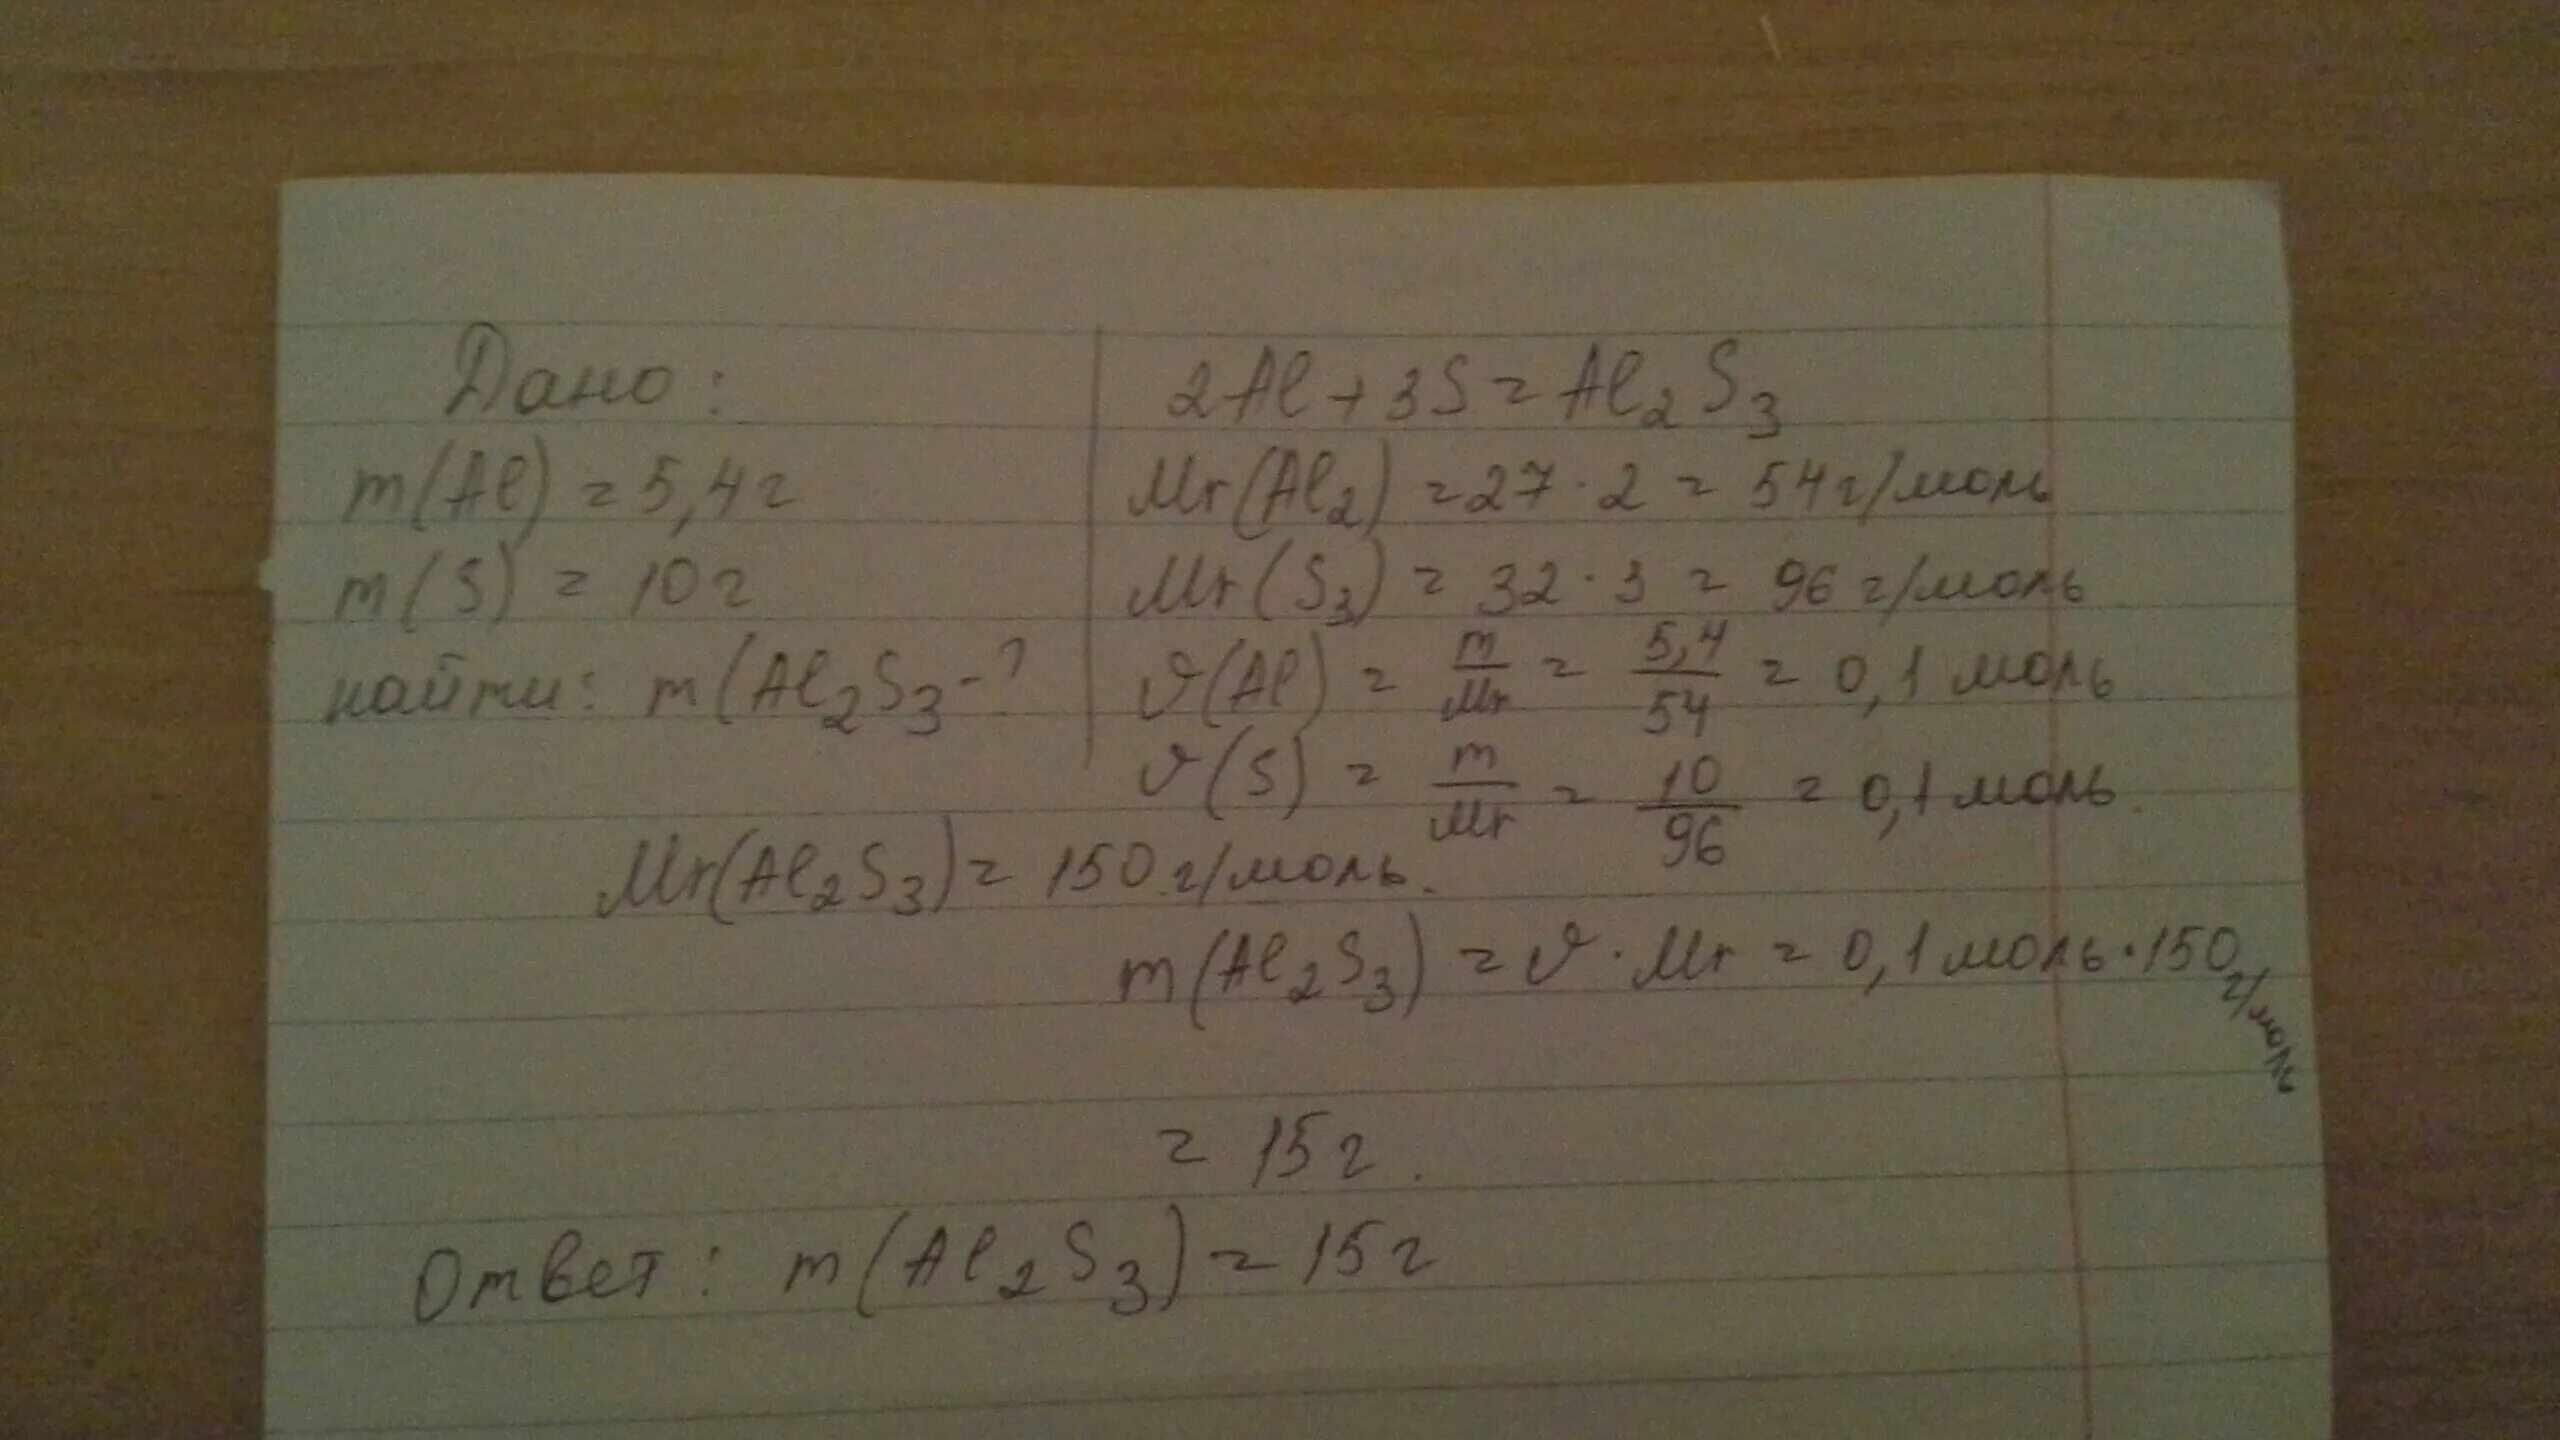 Дано:
m(Al) = 5,4г
m(S) = 10г
найти: m(Al₂S₃-?
2Al+3S=Al₂S₃
Mr(Al₂) = 27·2 = 54г/моль
Mr(S₃) = 32·3 = 96г/моль
ϑ(Al) = m/Mr = 5,4/54 = 0,1 моль
ϑ(S) = m/Mr = 10/96 = 0,1 моль.
Mr(Al₂S₃) = 150 г/моль.
m(Al₂S₃) = ϑ·Mr = 0,1 моль·150г/моль
= 15г.
Ответ: m(Al₂S₃) = 15г